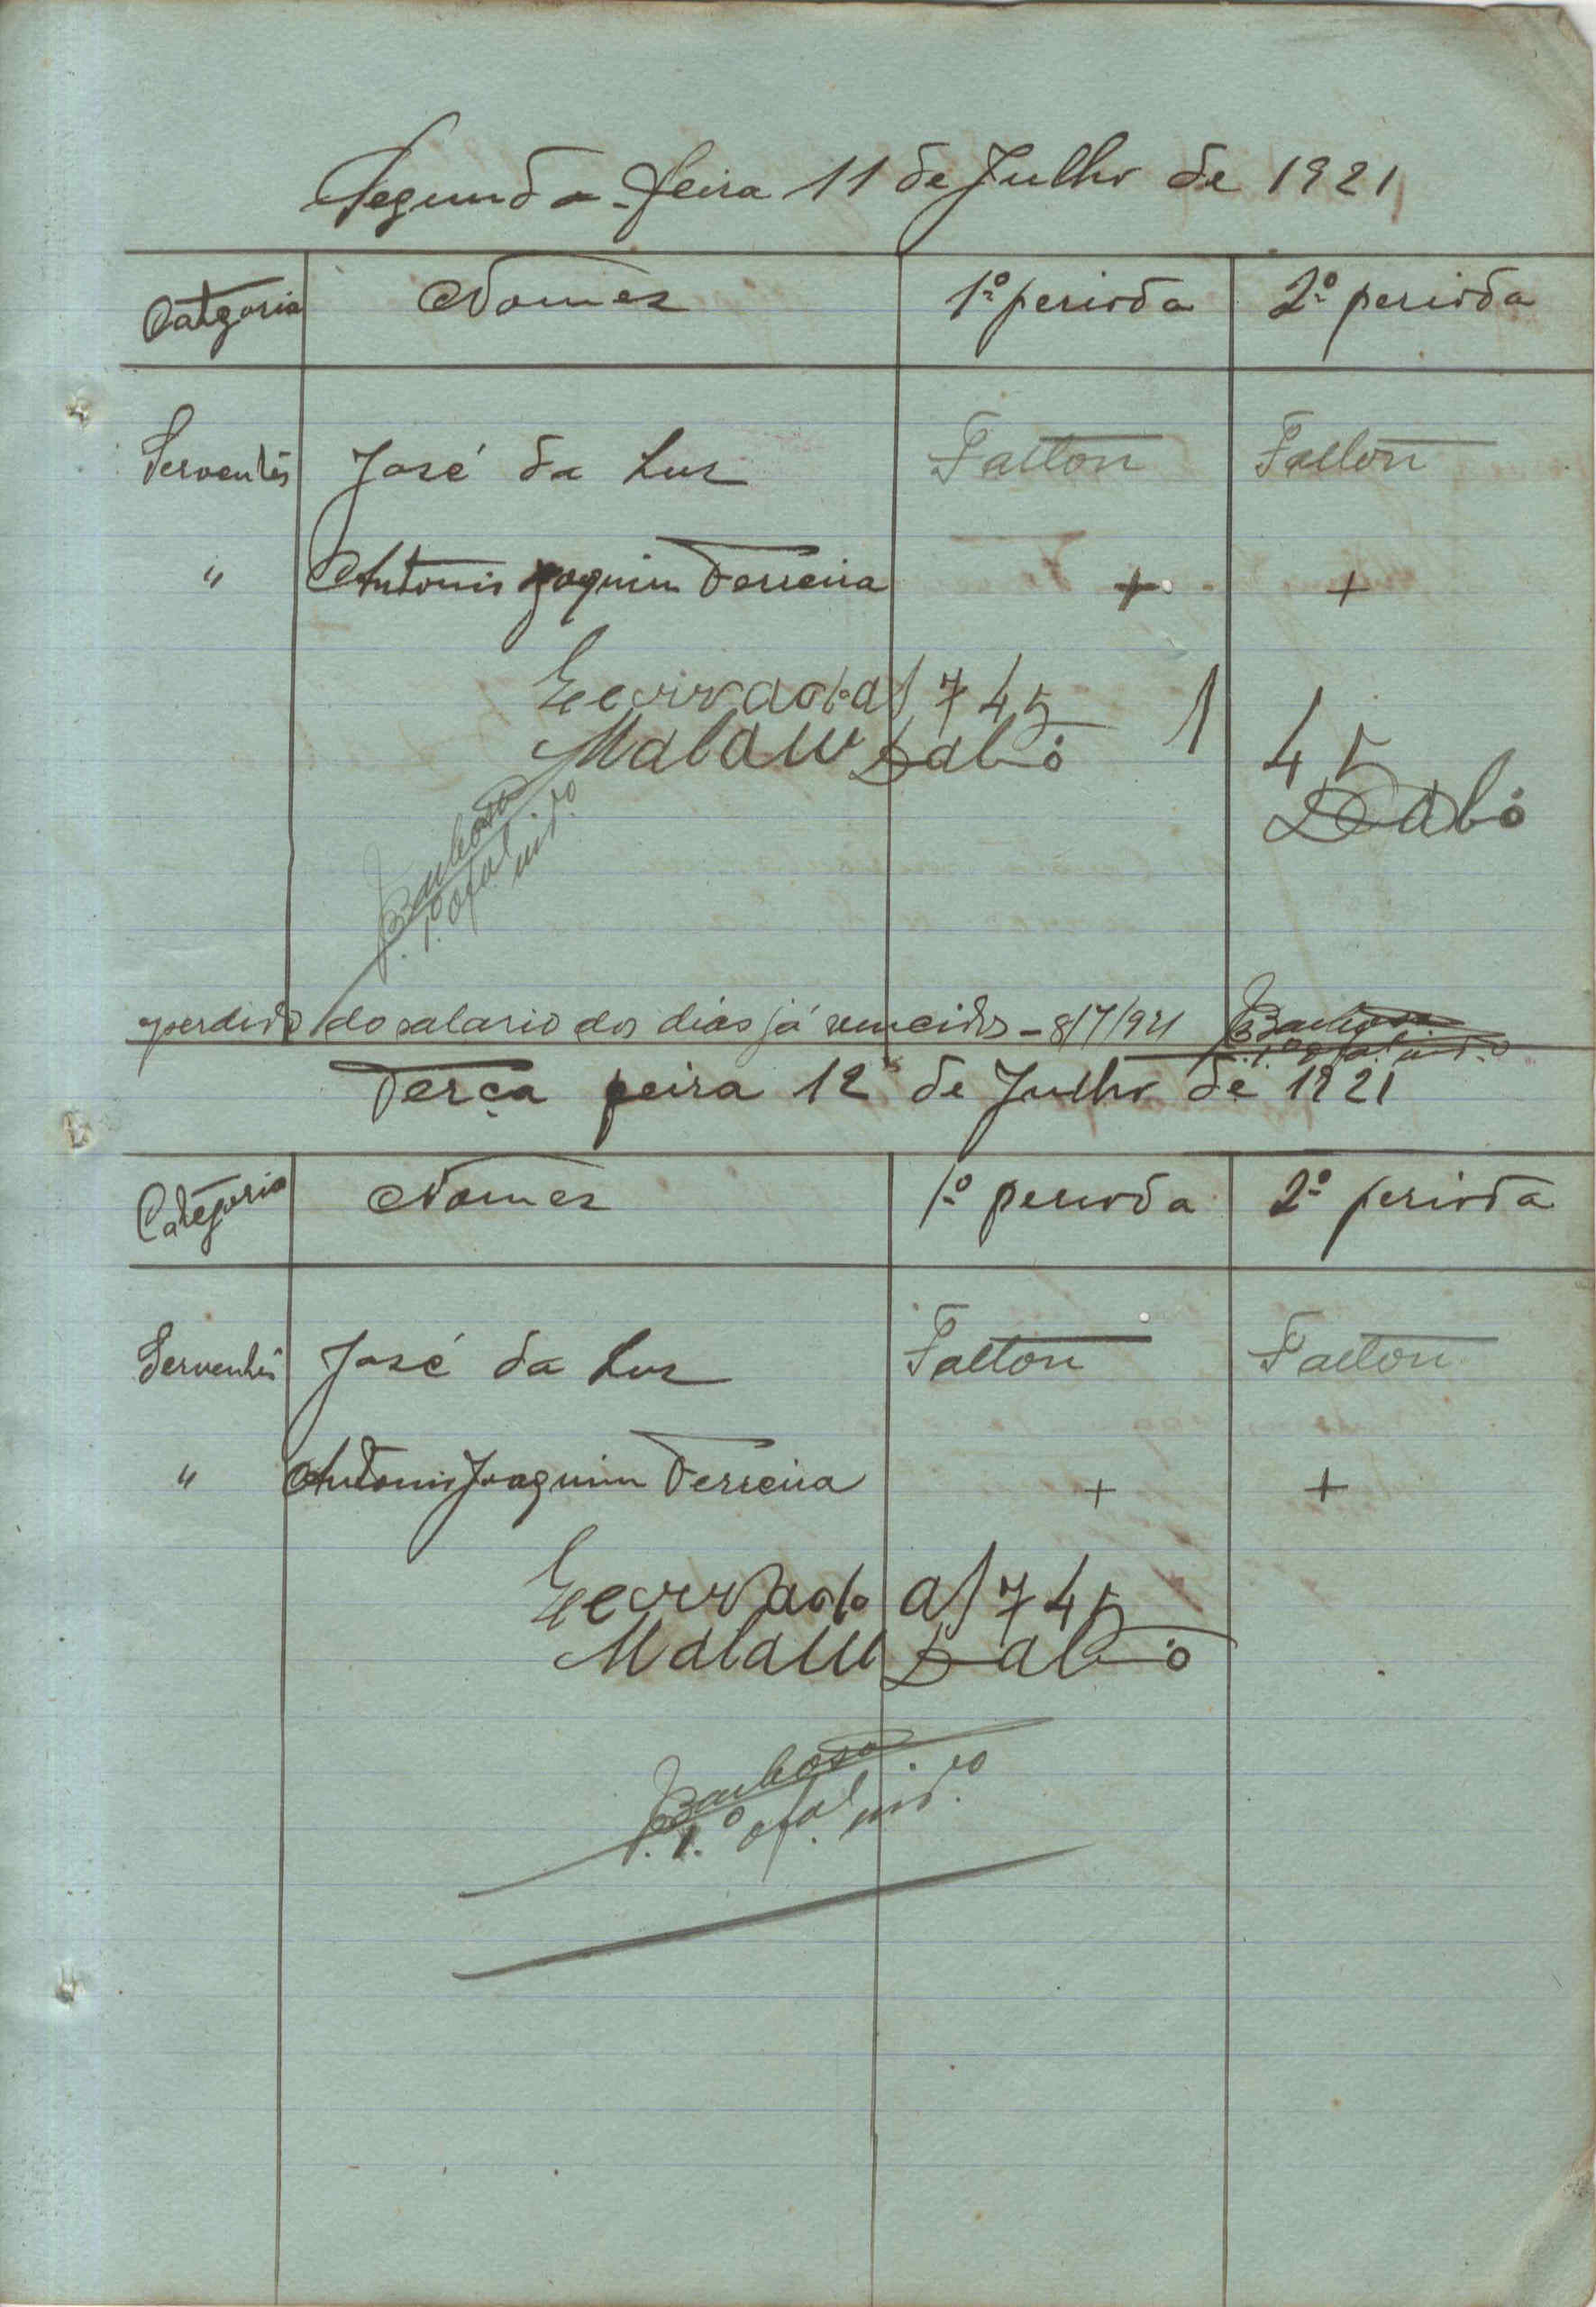 Segunda-feira 11 de Julho de 1921
Categoria Nomes 1º perioda 2º perioda
Serventes José da Luz Faltou Faltou
" Antonio Joaquim Ferreira + +
Ecerrado as 7 45 1 45
Malam Dabó Dabó
Barbosa
1.º ofal.
perdido do salario dos dias já vencidos - 8/7/921 Barbosa
Terça feira 12 de Julho de 1921
Categoria Nomes 1º perioda 2º perioda
Serventes José da Luz Faltou Faltou
" Antonio Joaquim Ferreira + +
Ecerrado as 7 45
Malam Dabó
Barbosa
1.º ofal.